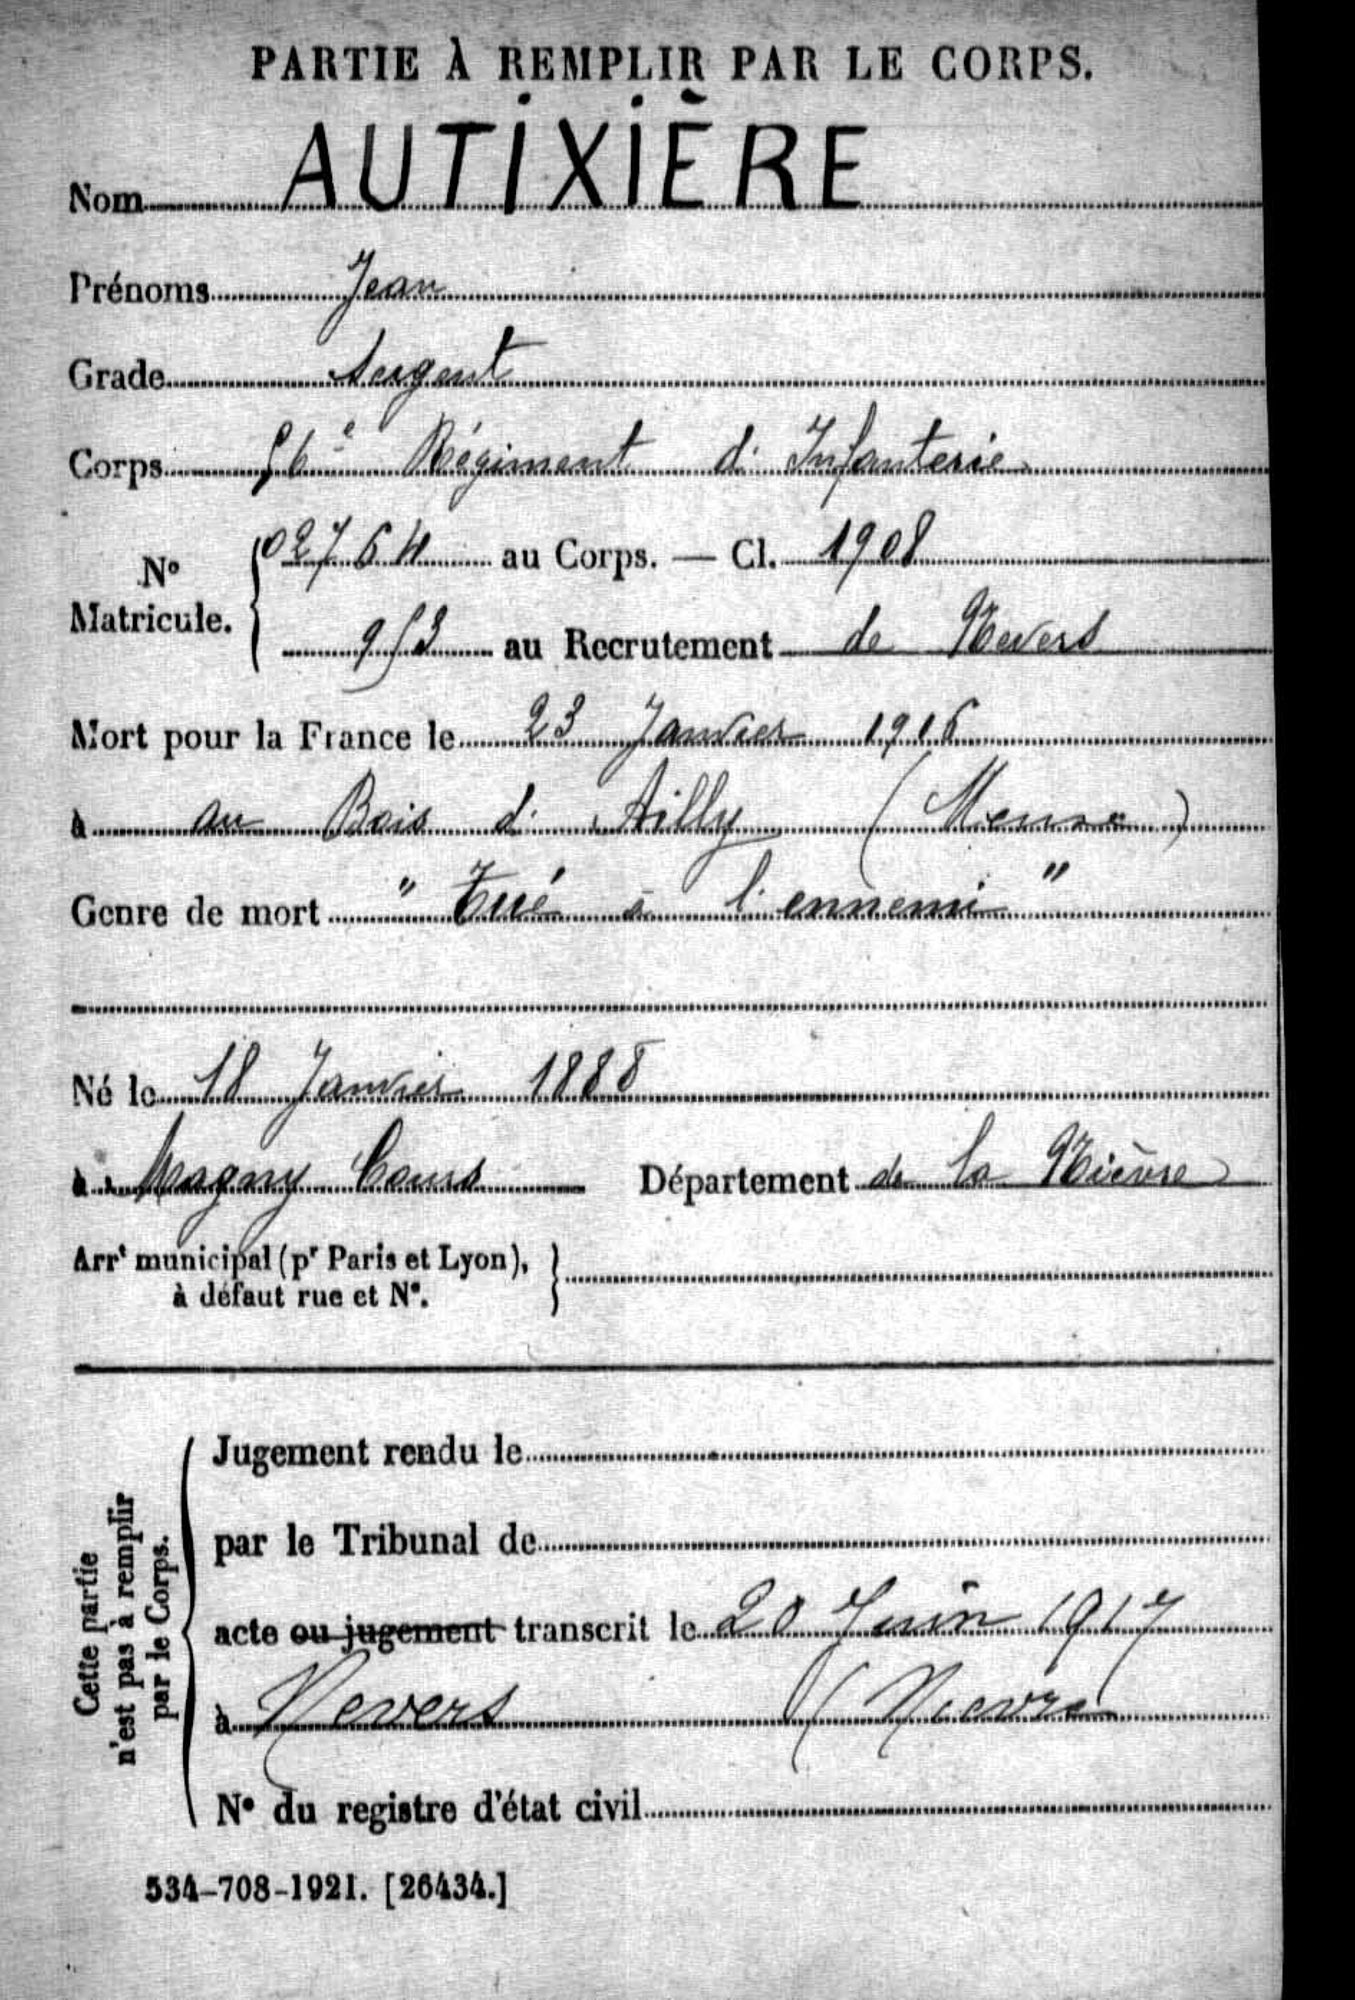 PARTIE À REMPLIR PAR LE CORPS.
Nom AUTIXIÈRE
Prénoms Jean
Grade Sergent
Corps 56e Régiment d'Infanterie
No Matricule. 02764 au Corps. — Cl. 1908
953 au Recrutement de Nevers
Mort pour la France le 23 Janvier 1916
à au Bois d'Ailly (Meuse)
Genre de mort "Tué à l'ennemi"
Né le 18 Janvier 1888
à Magny Cours Département de la Nièvre
Arrt municipal (pr Paris et Lyon),
à défaut rue et No.
Cette partie
n'est pas à remplir
par le Corps.
Jugement rendu le
par le Tribunal de
acte ou jugement transcrit le 20 Juin 1917
à Nevers (Nièvre
No du registre d'état civil
534-708-1921. [26434.]